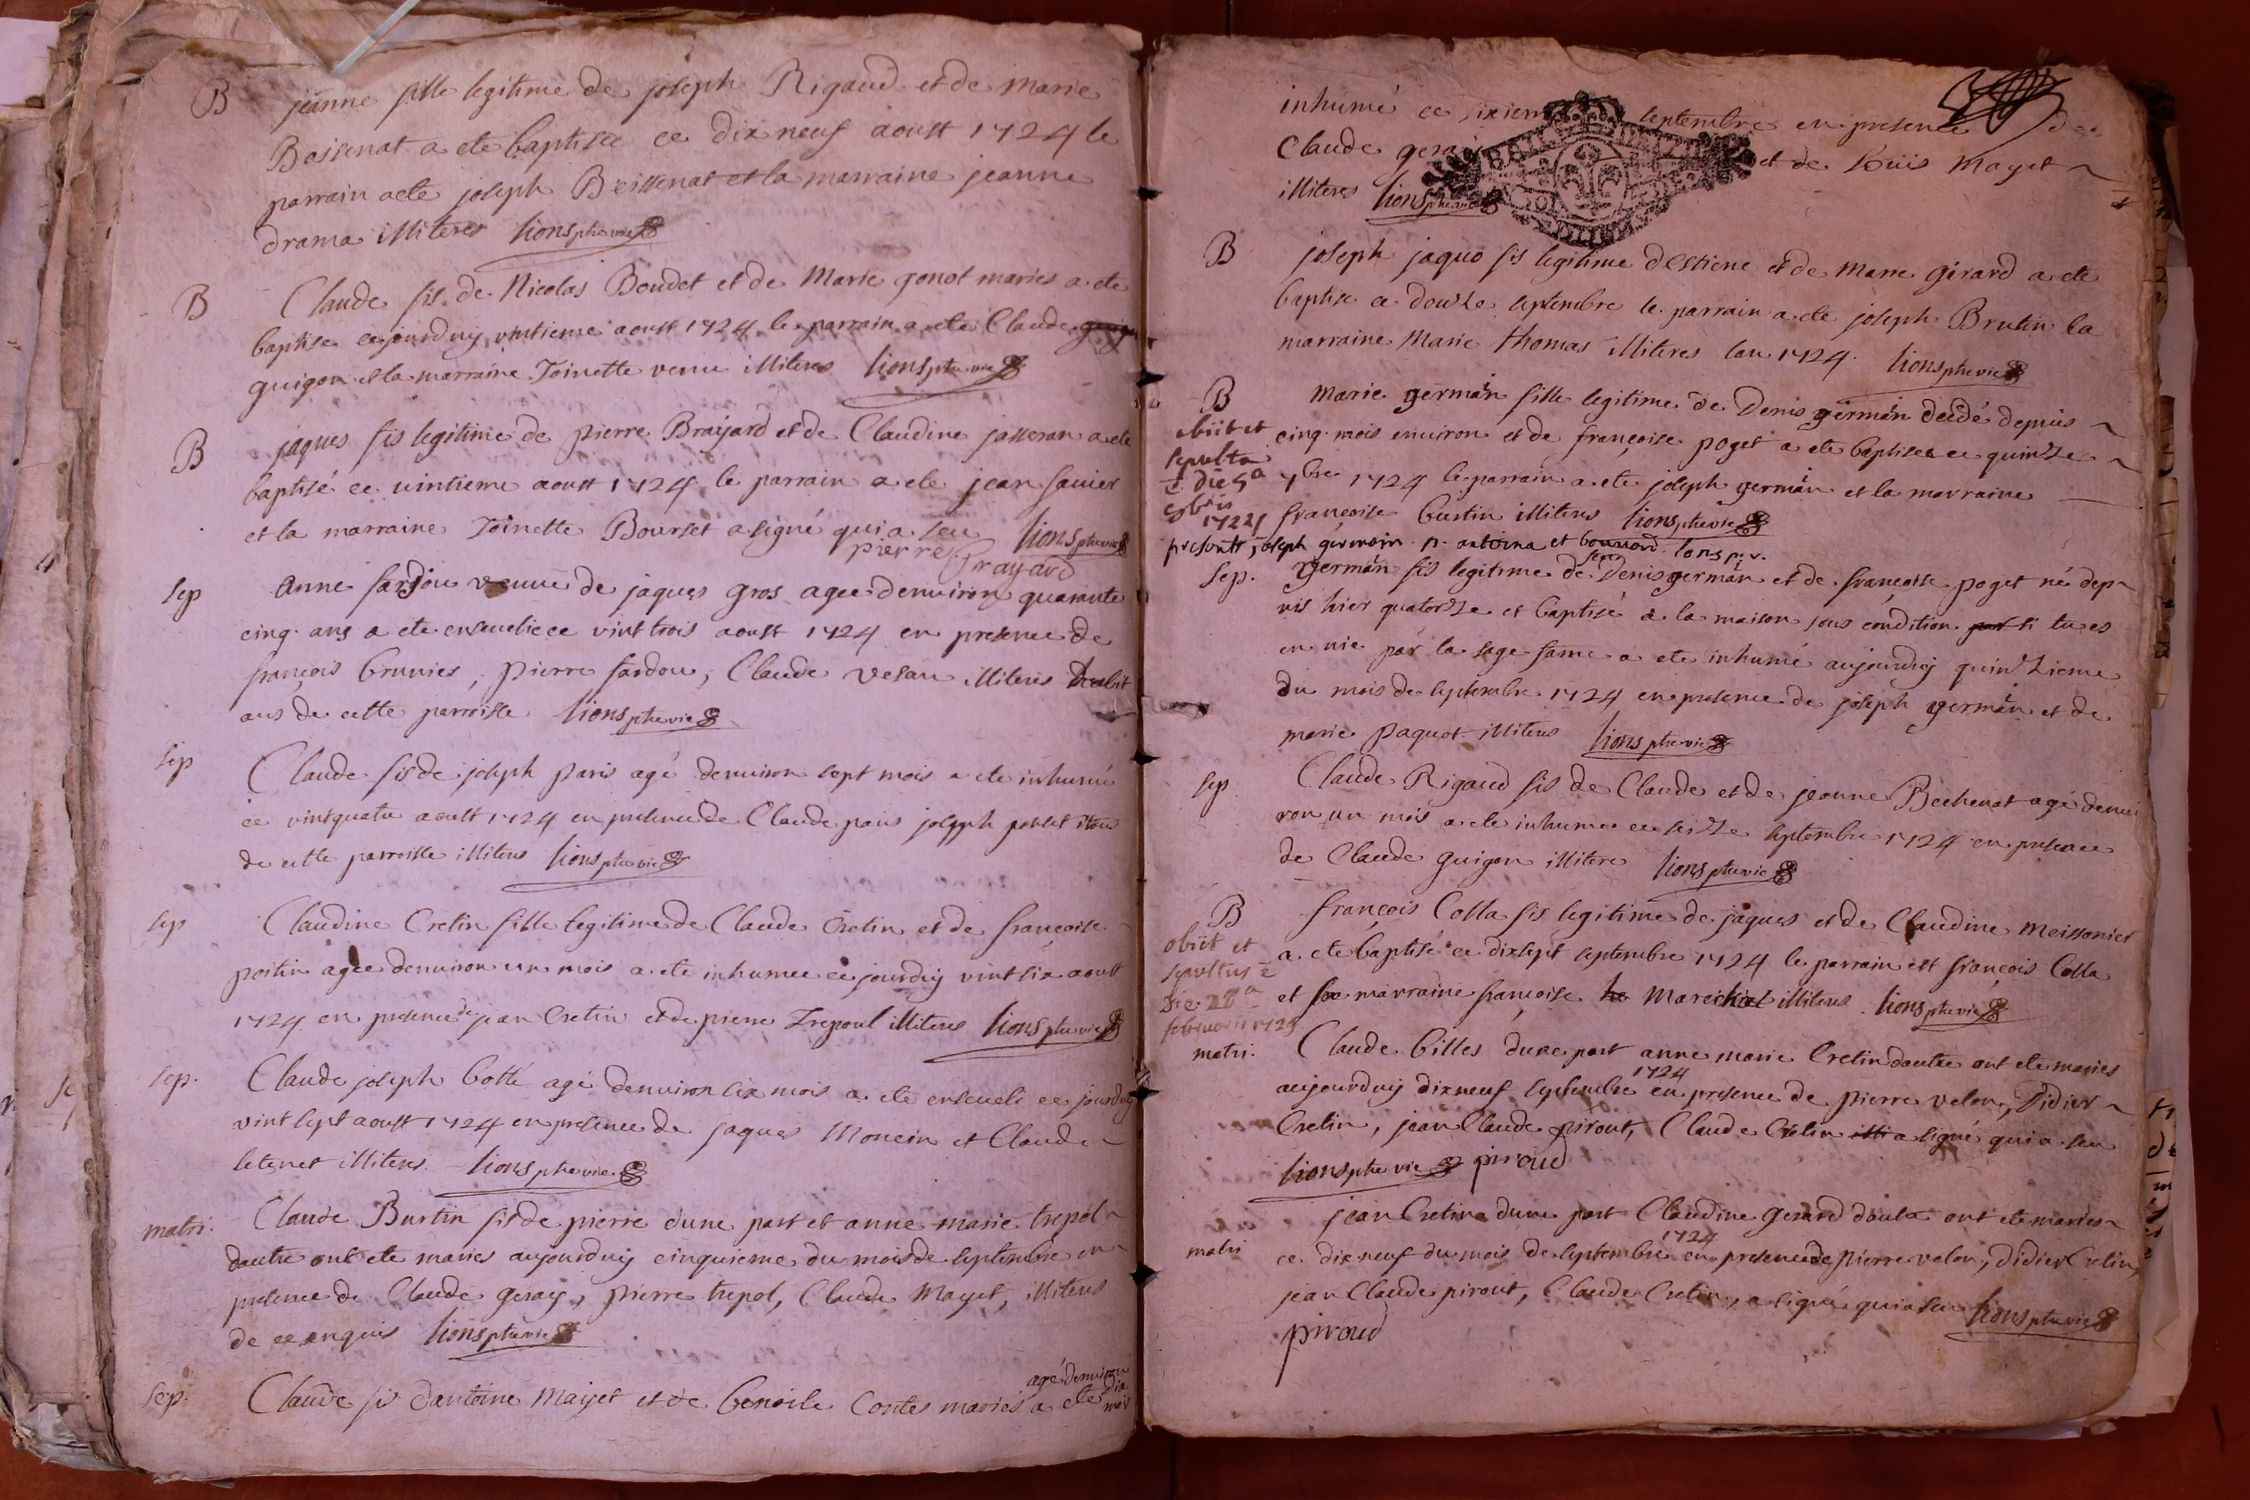 B jeanne fille legitime de joseph Rigaud et de marie
Boissenat a ete baptisée ce dix neuf aoust 1724 le
parrain a ete joseph Beissenat et la marraine jeanne
drama illiteres Lions ptre vic
B Claude fis de Nicolas Boudet et de Marie gonot maries a ete
baptise ce jourduy vintieme aoust 1724 le parrain a ete Claude
guigon et la marraine Toinette venu illiteres Lions ptre vic
B jaques fis legitime de pierre Brayard et de Claudine jasseran a ete
baptisé ce vintieme aoust 1724 le parrain a ete jean
et la marraine Toinette Bourset a signé qui a seu Lions ptre vic
pierre Brayard
Sep Anne fardou veuue de jaques gros agee denuiron quarante
cinq ans a ete enseuelie ce vint trois aoust 1724 en presence de
françois brunies, pierre fardou, Claude vesan illiteres habit
ans de cette parroisse Lions ptre vic
Sep Claude fis de joseph paris agé denuiron sept mois a ete inhumé
ce vintquatre aoust 1724 en presence de Claude paris joseph
de cette parroisse illiteres Lions ptre vic
Sep Claudine Cretin fille legitime de Claude Cretin et de françoise
poitin agée denuiron un mois a ete inhumee ce jourduy vint six aoust
1724 en presence de jean Cretin et de pierre Trepoul illiteres Lions ptre vic
Sep. Claude joseph Botté agé denuiron six mois a ete enseueli ce jourduy
vint sept aoust 1724 en presence de jaques Moncin et Claude
letenet illiteres Lions ptre vic
matri. Claude Burtin fis de pierre dune part et anne marie trepol
dautre ont ete maries aujourduy cinquieme du mois de septembre en
presence de Claude geray, pierre trepol, Claude Mayet, illiteres
de ce enquis Lions ptre vic
agé denuiron
Sep. Claude fis dantoine Mayet et de benoite Contes mariés a ete six mois
inhumé ce sixieme septembre en presence de
Claude et de Louis mayet
illiteres Lions ptre vic
B joseph jaquo fis legitime dEstiene et de marie girard a ete
baptise ce douze septembre le parrain a ete joseph Brutin la
marraine Marie thomas illiteres lan 1724. Lions ptre vic
B Marie germain fille legitime de Denis germain decedé depuis
obiit et cinq mois enuiron et de françoise poget a ete baptisee ce quinze
sepulta
7bre 1724 le parrain a ete joseph germain et la marraine
françoise burtin illiteres Lions ptre vic
presents joseph germain p. antoina et bonnard. Lions p. v.
feu
Sep. germain fis legitime de Denis germain et de françoise poget né dep
uis hier quatorze et baptisé a la maison sous condition si tu es
en uie par la sage fame a ete inhumé aujourduy quinzieme
du mois de septembre 1724 en presence de joseph germain et de
marie paquet illiteres Lions ptre vic
Sep Claude Rigaud fis de Claude et de jeanne Bechenat agé denui
ron un mois a ete inhumee ce seize septembre 1724 en presence
de Claude guigon illitere Lions ptre vic
B françois Colla fis legitime de jaques et de Claudine meissonier
obiit et a ete baptisé ce dixsept septembre 1724 le parrain est françois Colla
sepultus
et sa marraine françoise Marechal illiteres Lions ptre vic
februarii 1725
matri. Claude Gilles dune part anne marie Cretin dautre ont ete maries
1724
aujourduy dixneuf septembre en presence de pierre velon, Didier
Cretin, jean Claude pirout, Claude Cretin a signé qui a seu
Lions ptre vic piroud
jean Cretin dune part Claudine gerard dautre ont ete maries
1724
matri ce dix neuf du mois de septembre en presence de pierre velon, didier Cretin,
jean Claude pirout, Claude Cretin, a signé qui a seu Lions ptre vic
piroud